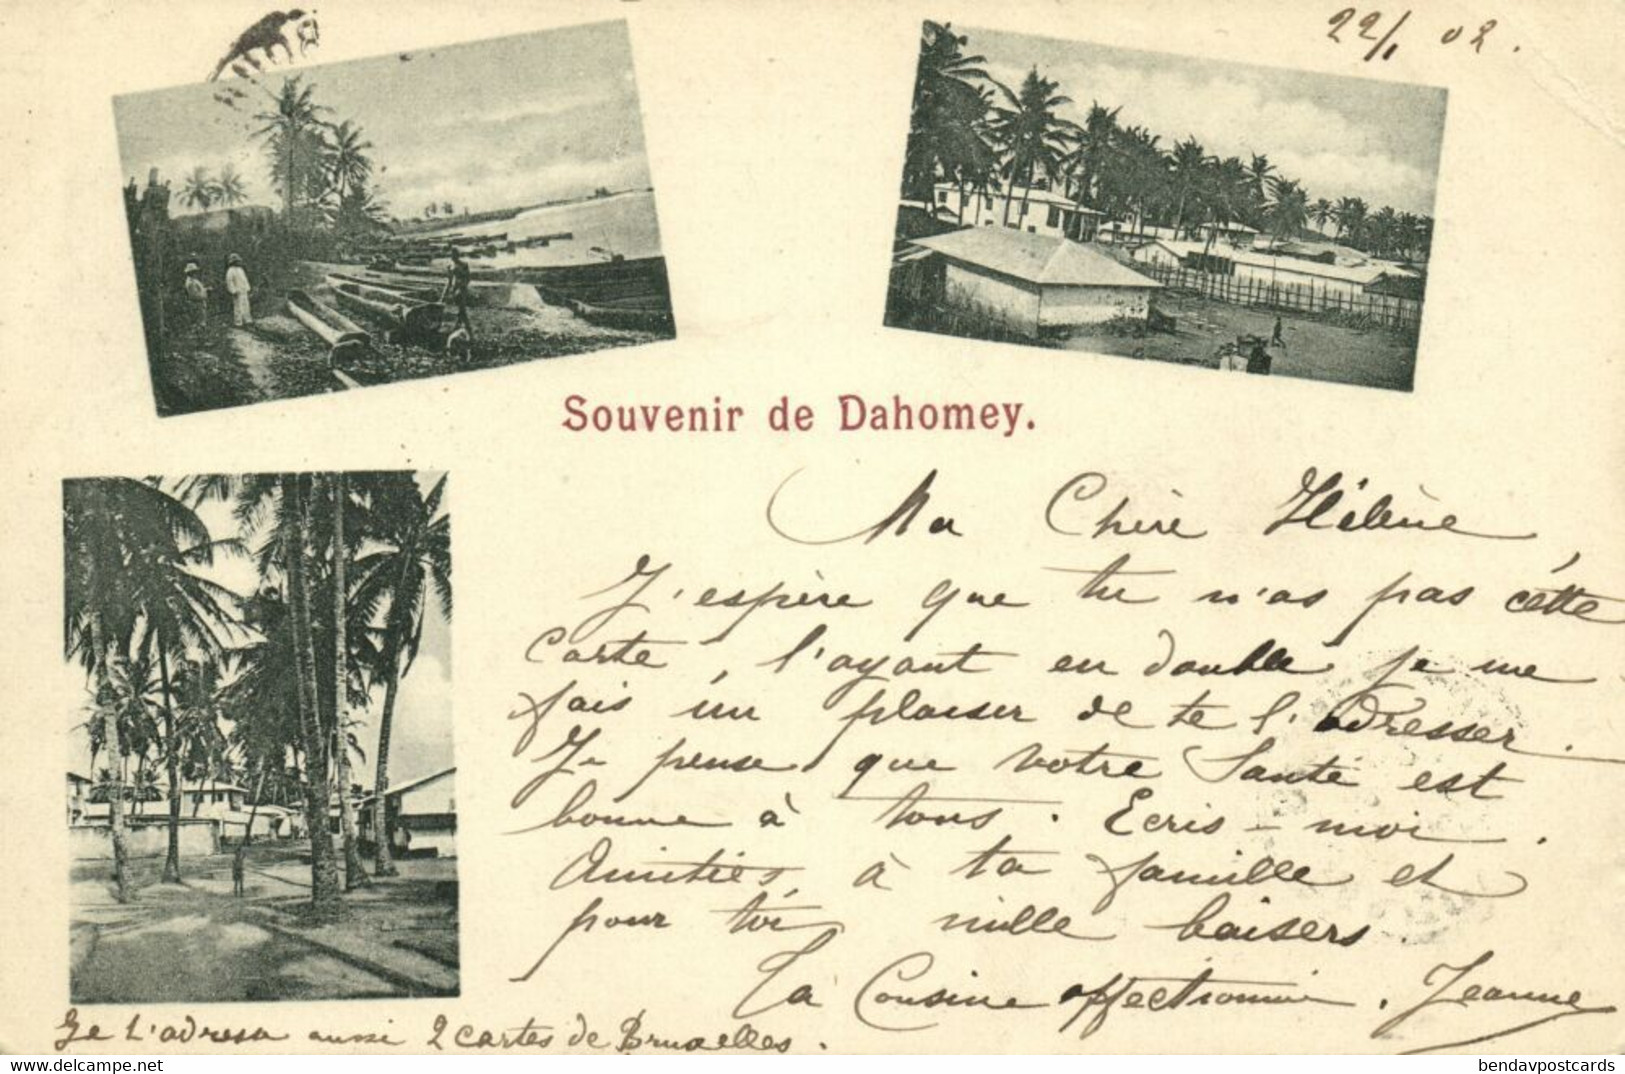 22/1 02.
Souvenir de Dahomey.
Ma Chère Hélène
J'espère que tu n'as pas cétte
Carte, l'ayant en double je me
fais un plaisir de te l'adresser.
Je pense que votre Santé est
bonne à tous. Ecris-moi.
Amitiés à ta famille et
pour toi mille baisers.
Ta Cousine affectionnée. Jeanne
Je t'adresse aussi 2 cartes de Bruxelles.
bendavpostcards